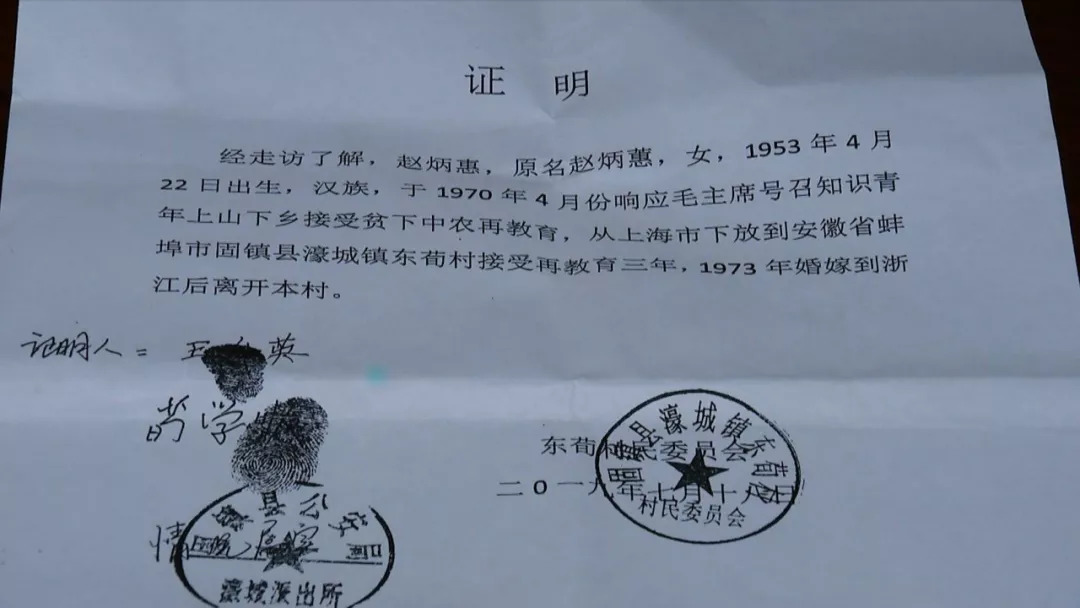 证 明
经走访了解，赵炳惠，原名赵炳蕙，女，1953 年 4 月
22 日出生，汉族，于 1970 年 4 月份响应毛主席号召知识青
年上山下乡接受贫下中农再教育，从上海市下放到安徽省蚌
埠市固镇县濠城镇东荀村接受再教育三年，1973 年婚嫁到浙
江后离开本村。
证明人：王 英
荀学
东荀村民委员会
二0一八年十月十 日
固镇县濠城镇东荀村
村民委员会
情况属实
固镇县公安局
濠城派出所